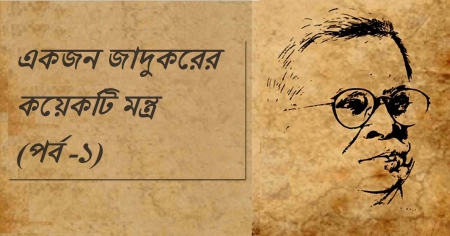 একজন জাদুকরের
কয়েকটি মন্ত্র
(পর্ব -১)